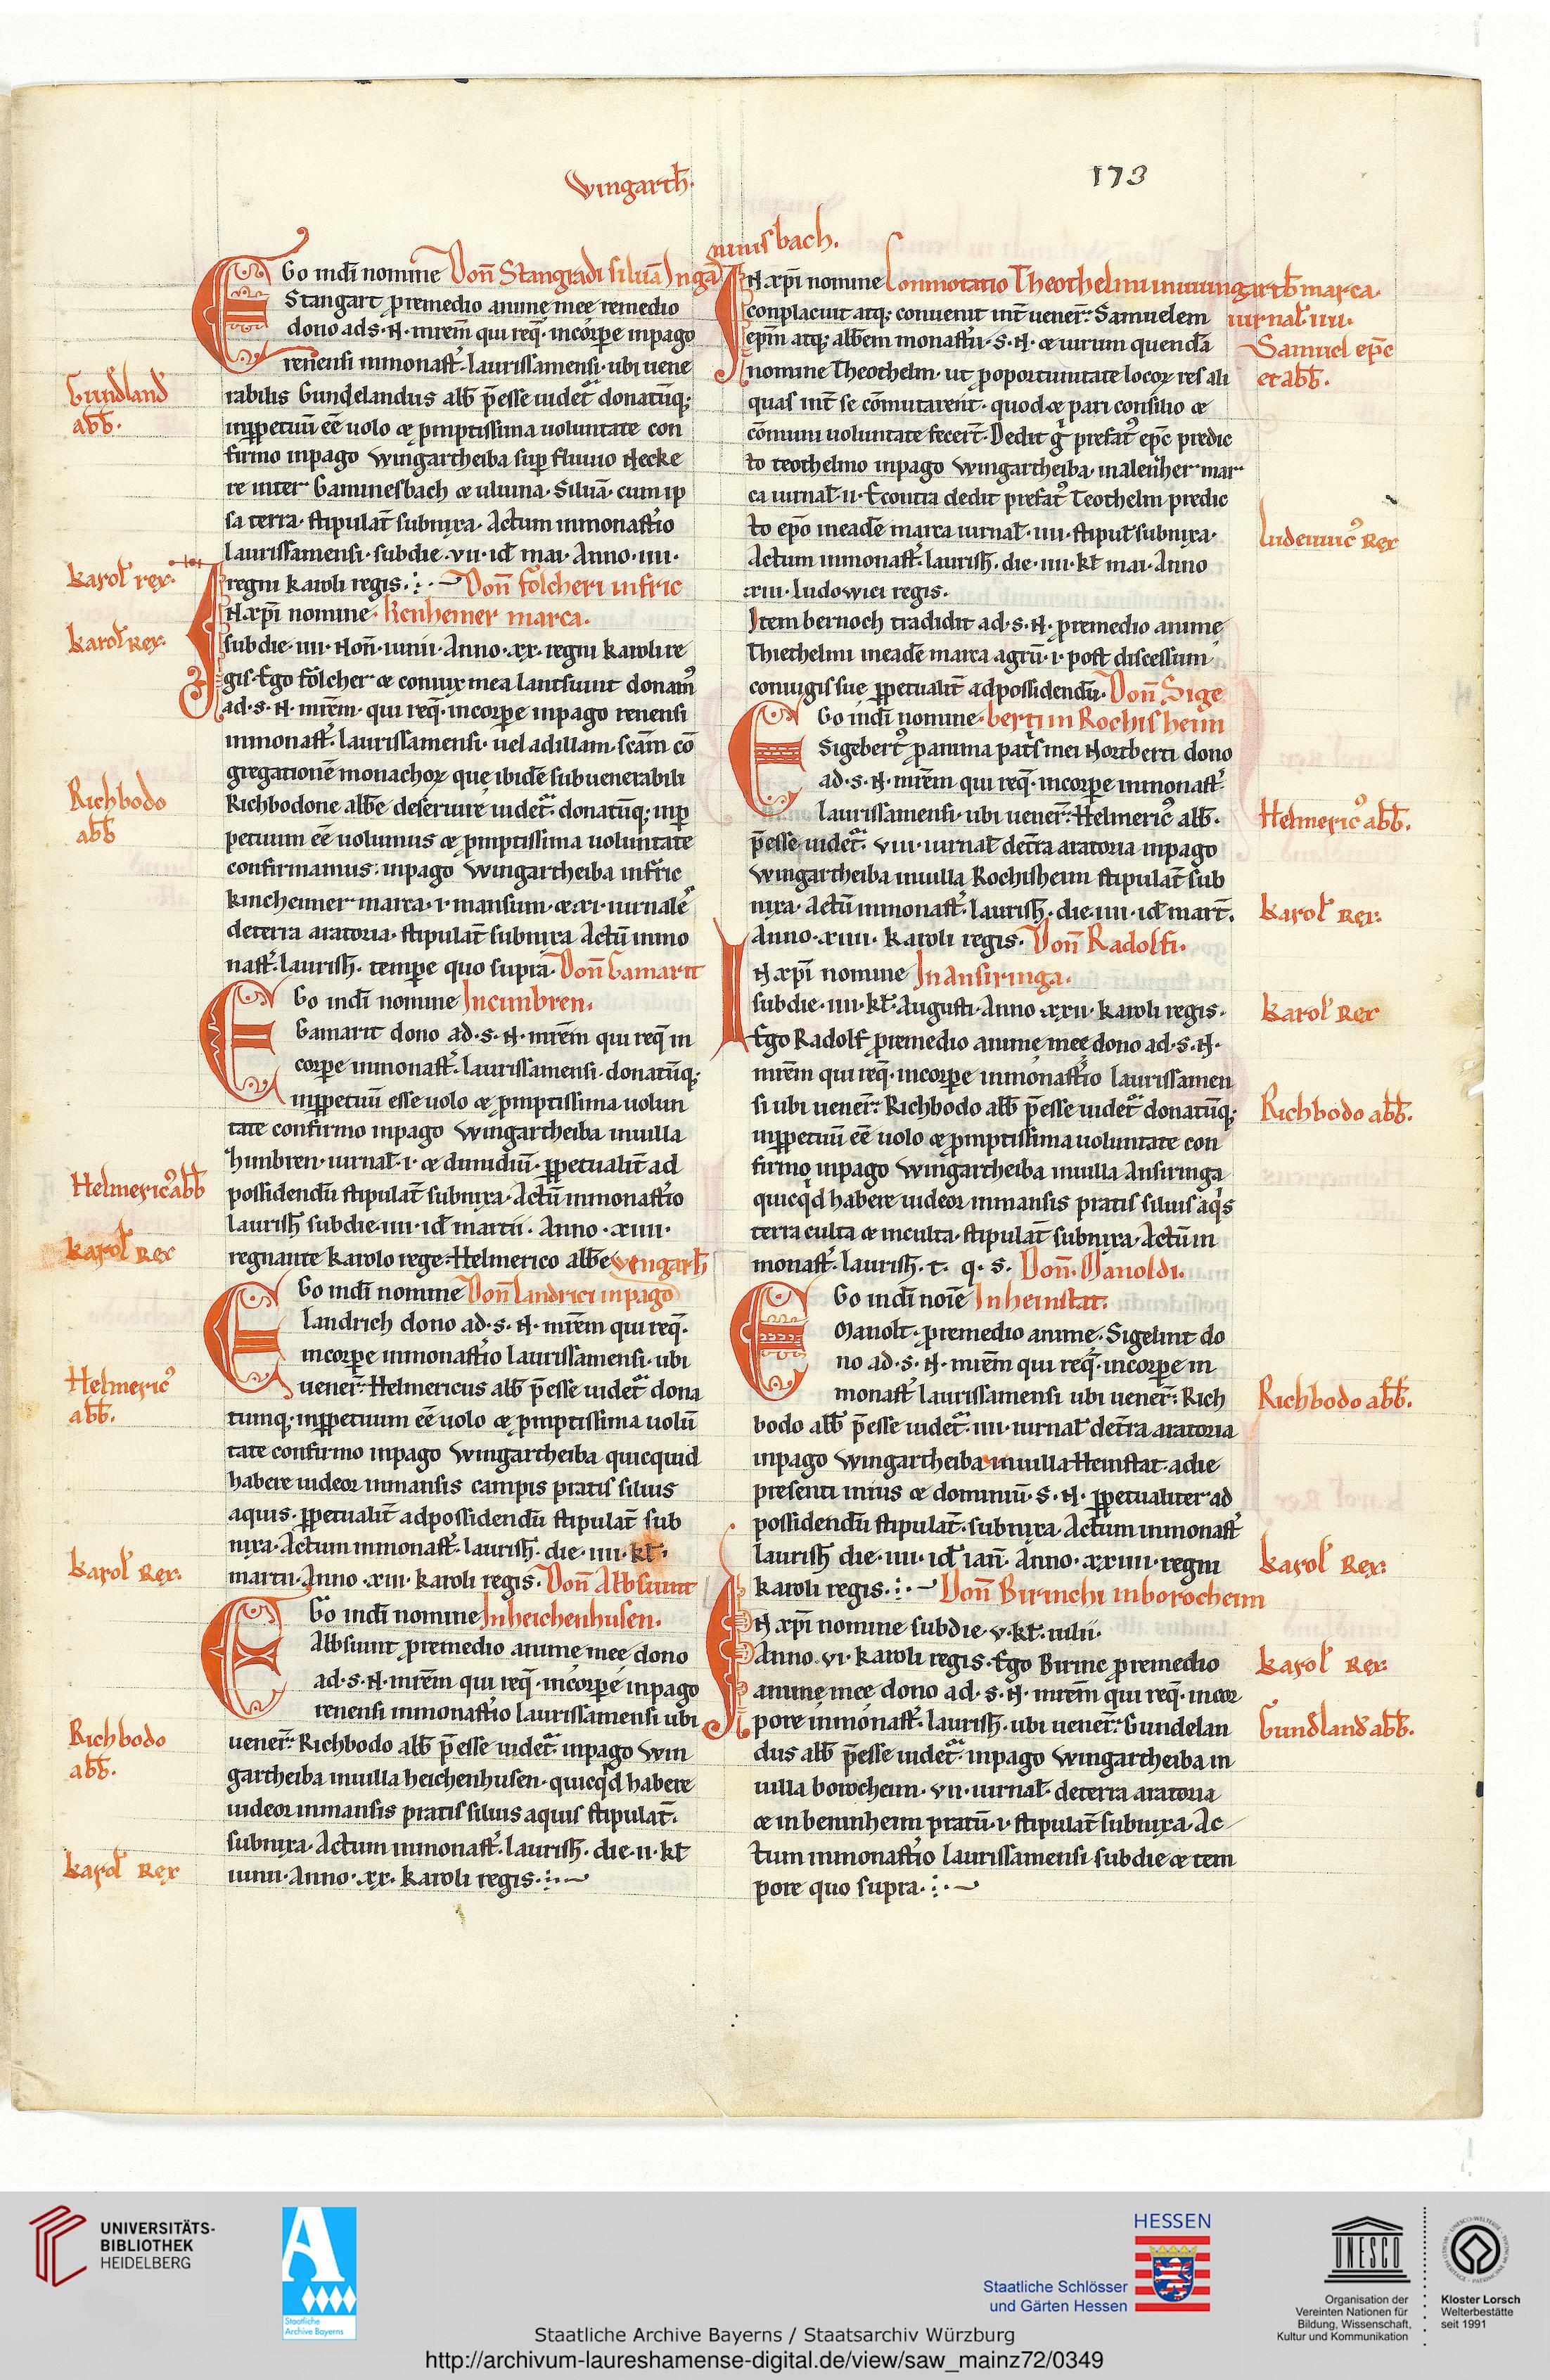 wingarth̄.
173
Go in dī nomine Don̄ Stangradi siluā In ga
minisbach.
Stangart p remedio anime mee remedio
dono ad s· N· mrēm qui req̄· in corpe in pago
renensi in monast̄· laurissamensi· ubi uene
rabilis Gundelandus abb̄ p̄esse uidet̄ donatūq;
in ppetuū ēē uolo & pmptissima uoluntate con
firmo in pago wingartheiba sup fluuio Necke
re inter Gaminesbach & uluina· Siluā cum ip
sa terra· stipulat̄ subnixa· Actum in monast̄io
laurissamensi· sub die· vii· id̄ mai· Anno· iiii·
regni karoli regis. Don̄ folcheri in fric
N xp̄i nomine· kenheimer marca.
sub die· iiii· Non̄· iunii· Anno· xx· regni karoli re
gis· Ego folcher & coniux mea lantsuint donam9
ad· s· N· mrēm· qui req̄· in corpe in pago renensi
in monast̄· laurissamensi· uel ad illam· scām cō
gregationē monachor que ibidē sub uenerabili
Richbodone abb̄e deseruire uidet̄· donatūq; in p
petuum ēē uolumus & pmptissima uoluntate
confirmamus: in pago wingartheiba in fric
kincheimer marca· i· mansum· & xi· iurnalē
de terra aratoria· stipulat̄ subnixa Actū in mo
nast̄· laurish̄· tempe quo supra· Don̄ Gamarit
Go in dī nomine In cimbren.
Gamarit dono ad· s· N· mrēm qui req̄ in
corpe in monast̄· laurissamensi· donatūq;
in ppetuū esse uolo & pmptissima uolun
tate confirmo in pago wingartheiba in uilla
himbren· iurnal̄· i· & dimidiū· ppetualit̄ ad
possidendū stipulat̄ subnixa· Actū in monast̄io
laurish̄ sub die· iiii· id̄ martii· Anno· xiiii·
regnante karolo rege· Helmerico abb̄e wengarh̄
Go in dī nomine Don̄ landrici in pago
landrich dono ad· s· N· mrēm qui req̄·
in corpe in monast̄io laurissamensi· ubi
uener̄· Helmericus abb̄ p̄esse uidet̄ dona
tumq; in ppetuum ēē uolo & pmptissima uolū
tate confirmo in pago wingartheiba quicquid
habere uideor in mansis campis pratis siluis
aquis· ppetualit̄ ad possidendū stipulat̄ sub
nixa· Actum in monast̄· laurish̄· die· iiii· kl̄·
martii· Anno· xiii· karoli regis· Don̄ Albsuint
Go in dī nomine In heichenhusen.
Albsuint p remedio anime mee dono
ad· s· N· mrēm qui req̄· in corpe in pago
renensi in monast̄io laurissamensi ubi
uener̄· Richbodo abb̄ p̄esse uidet̄· in pago win
gartheiba in uilla heichenhusen· quicq̄d habere
uideor in mansis pratis siluis aquis stipulat̄·
subnixa· Actum in monast̄· laurish̄· die· ii· kl̄
iunii· Anno· xx· karoli regis·
Gundland
abb̄·
karol̄ rex·
karol̄ Rex·
Richbodo
abb̄
Helmeric9 abb̄
karol̄ Rex
Helmeric9
abb̄·
karol̄ Rex·
Richbodo
abb̄·
karol̄ Rex
N xp̄i nomine Conmotatio Theothelmi in wingarth̄ marca·
conplacuit atq; conuenit int̄ uener̄· Samuelem
ep̄m atq; abb̄em monast̄ii· s· N· & uirum quendā
nomine Theothelm· ut p oportunitate locor res ali
quas int̄ se cōmutarent· quod & pari consilio &
cōmuni uoluntate fecer̄t· Dedit g prefat9 ep̄c predic
to teothelmo in pago wingartheiba· in aleuher mar
ca iurnal̄· ii· Econtra dedit prefat9 Teothelm predic
to epō in eadē marca iurnal̄· iiii· stipul̄ subnixa·
Actum in monast̄· laurish̄· die· iiii· kl̄ mai· Anno
xiii· ludowici regis·
Item bernoch tradidit ad· s· N· p remedio anime
Thiethelmi in eadē marca agrū· i· post discessum
coniugis sue ppetualit̄ ad possidendū· Don̄ Sige
Go in dī nomine· berti in Rochisheim
Sigebert9 p anima pat̄s mei Nortberti dono
ad· s· N· mrēm qui req̄· in corpe in monast̄·
laurissamensi· ubi uener̄· Helmeric9 abb̄·
p̄esse uidet̄· viii· iurnal̄ de t̄ra aratoria in pago
wingartheiba in uilla Rochisheim stipulat̄ sub
nixa· Actū in monast̄· laurish̄· die· iiii· id̄ mart̄·
Anno· xiiii· karoli regis· Don̄ Radolfi·
N xp̄i nomine In ansiringa·
sub die· iiii· kl̄· Augusti· Anno· xxii· karoli regis·
Ego Radolf p remedio anime mee dono ad· s· N·
mrēm qui req̄· in corpe in monast̄io laurissamen
si ubi uener̄· Richbodo abb̄ p̄esse uidet̄ donatūq;
in ppetuū ēē uolo & pmptissima uoluntate con
firmo in pago wingartheiba in uilla Ansiringa
quicq̄d habere uideor in mansis pratis siluis aq̄s
terra culta & inculta· stipulat̄ subnixa· Actū in
monast̄· laurish̄· t· q· s· Don̄· Manoldi·
Go in dī noīe In heinstat·
Manolt· p remedio anime· Sigelint do
no ad· s· N· mrēm qui req̄· in corpe in
monast̄ laurissamensi ubi uener̄· Rich
bodo abb̄ p̄esse uidet̄· iiii· iurnal̄ de t̄ra aratoria
in pago wingartheiba in uilla Heinstat· a die
presenti in ius & dominiū· s· N· ppetualiter ad
possidendū stipulat̄· subnixa· Actum in monast̄
laurish̄ die· iiii· id̄ ian̄· Anno· xxiiii· regni
karoli regis· Don̄ Birinchi in borocheim
N xp̄i nomine sub die· v· kl̄· iulii·
Anno· vi· karoli regis· Ego Birinc p remedio
anime mee dono ad· s· N· mrēm qui req̄· in cor
pore in monast̄· laurish̄· ubi uener̄· Gundelan
dus abb̄ p̄esse uidet̄· in pago wingartheiba in
uilla borocheim· vii· iurnal̄· de terra aratoria
& in beninheim pratū· i· stipulat̄ subnixa· Ac
tum in monast̄io laurissamensi sub die & tem
pore quo supra·
iurnal̄ iiii·
Samuel ep̄c
et abb̄·
ludewic9 Rex
Helmeric9 abb̄·
karol̄ Rex·
karol̄ Rex
Richbodo abb̄·
Richbodo abb̄·
karol̄ Rex·
karol̄ Rex·
Gundland abb̄·
UNIVERSITÄTS-
BIBLIOTHEK
HEIDELBERG
Staatliche
Archive Bayerns
HESSEN
Staatliche Schlösser
und Gärten Hessen
UNESCO
Organisation der
Vereinten Nationen für
Bildung, Wissenschaft,
Kultur und Kommunikation
Kloster Lorsch
Welterbestätte
seit 1991
Staatliche Archive Bayerns / Staatsarchiv Würzburg
http://archivum-laureshamense-digital.de/view/saw_mainz72/0349